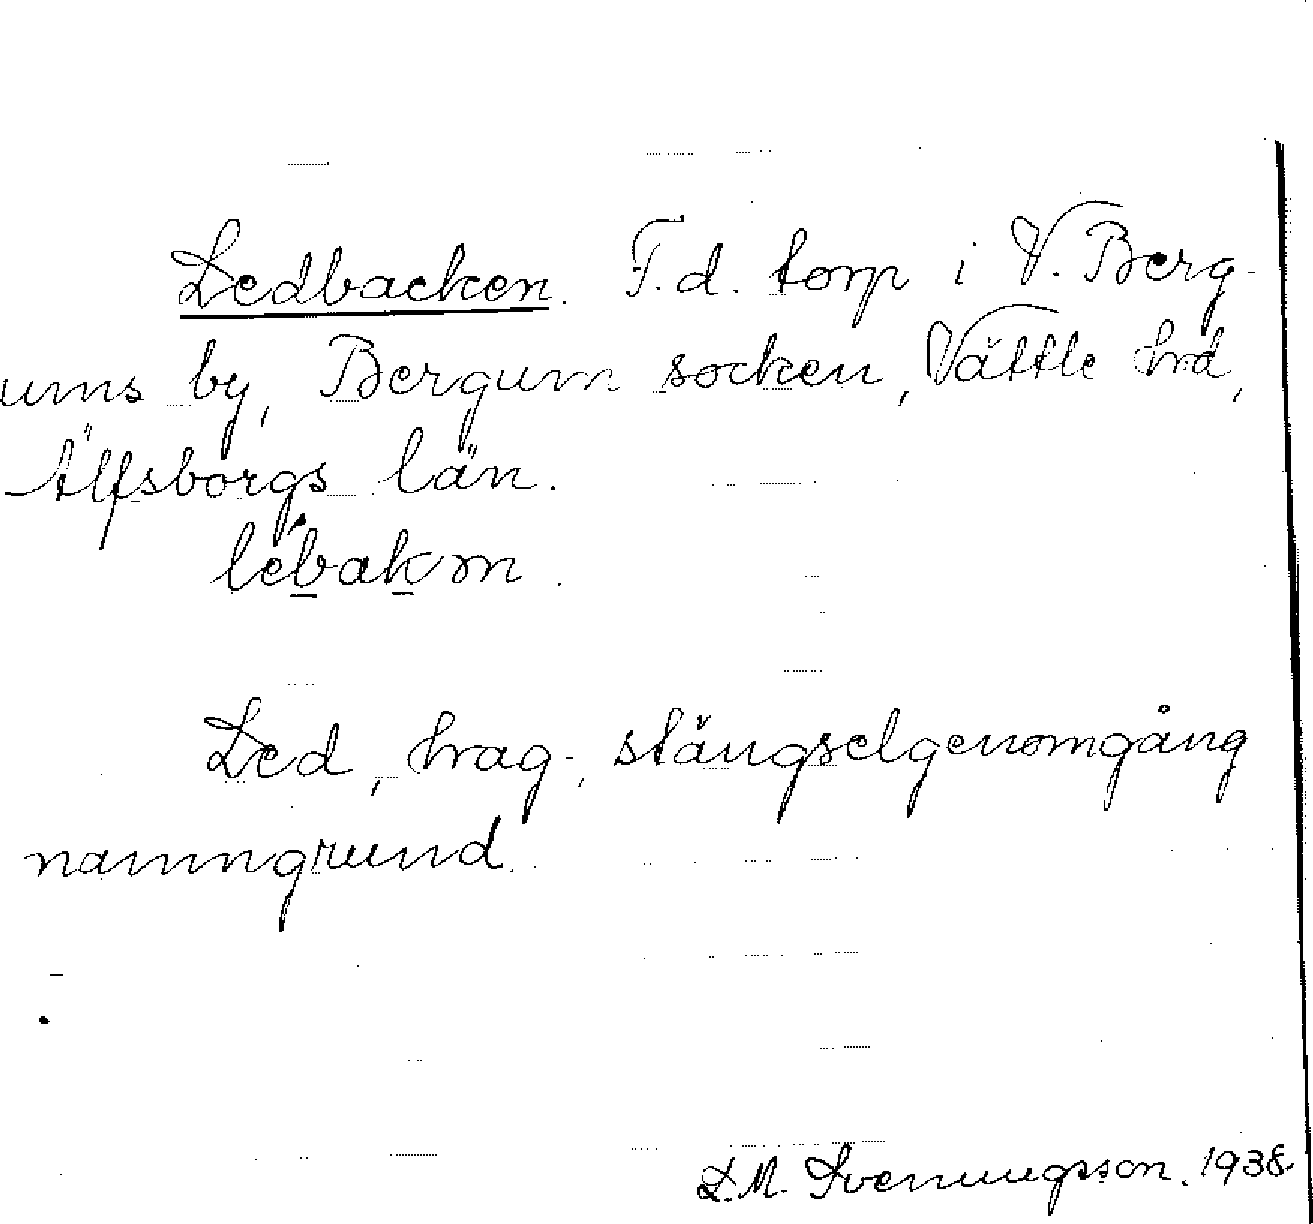 Ledbacken. F.d. torp i V. Berg-
ums by, Bergum socken, Vättle hd,
Älfsborgs län.
lèbakm.
Led, hag-, stängselgenomgång
namngrund.
L.M. Svenungsson. 1938